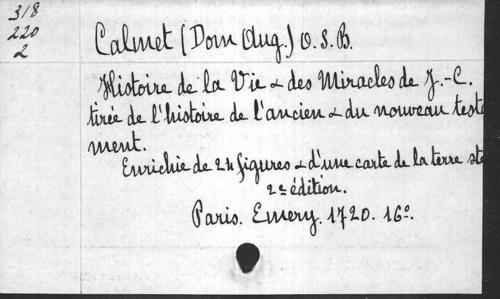 318
220
2
Calmet (Dom Aug.) O. S. B.
Histoire de la Vie & des Miracles de J.-C.
tirée de l'histoire de l'ancien & du nouveau testa
ment.
Enrichie de 24 figures & d'une carte de la terre ste
2e édition.
Paris. Emery. 1720. 16o.